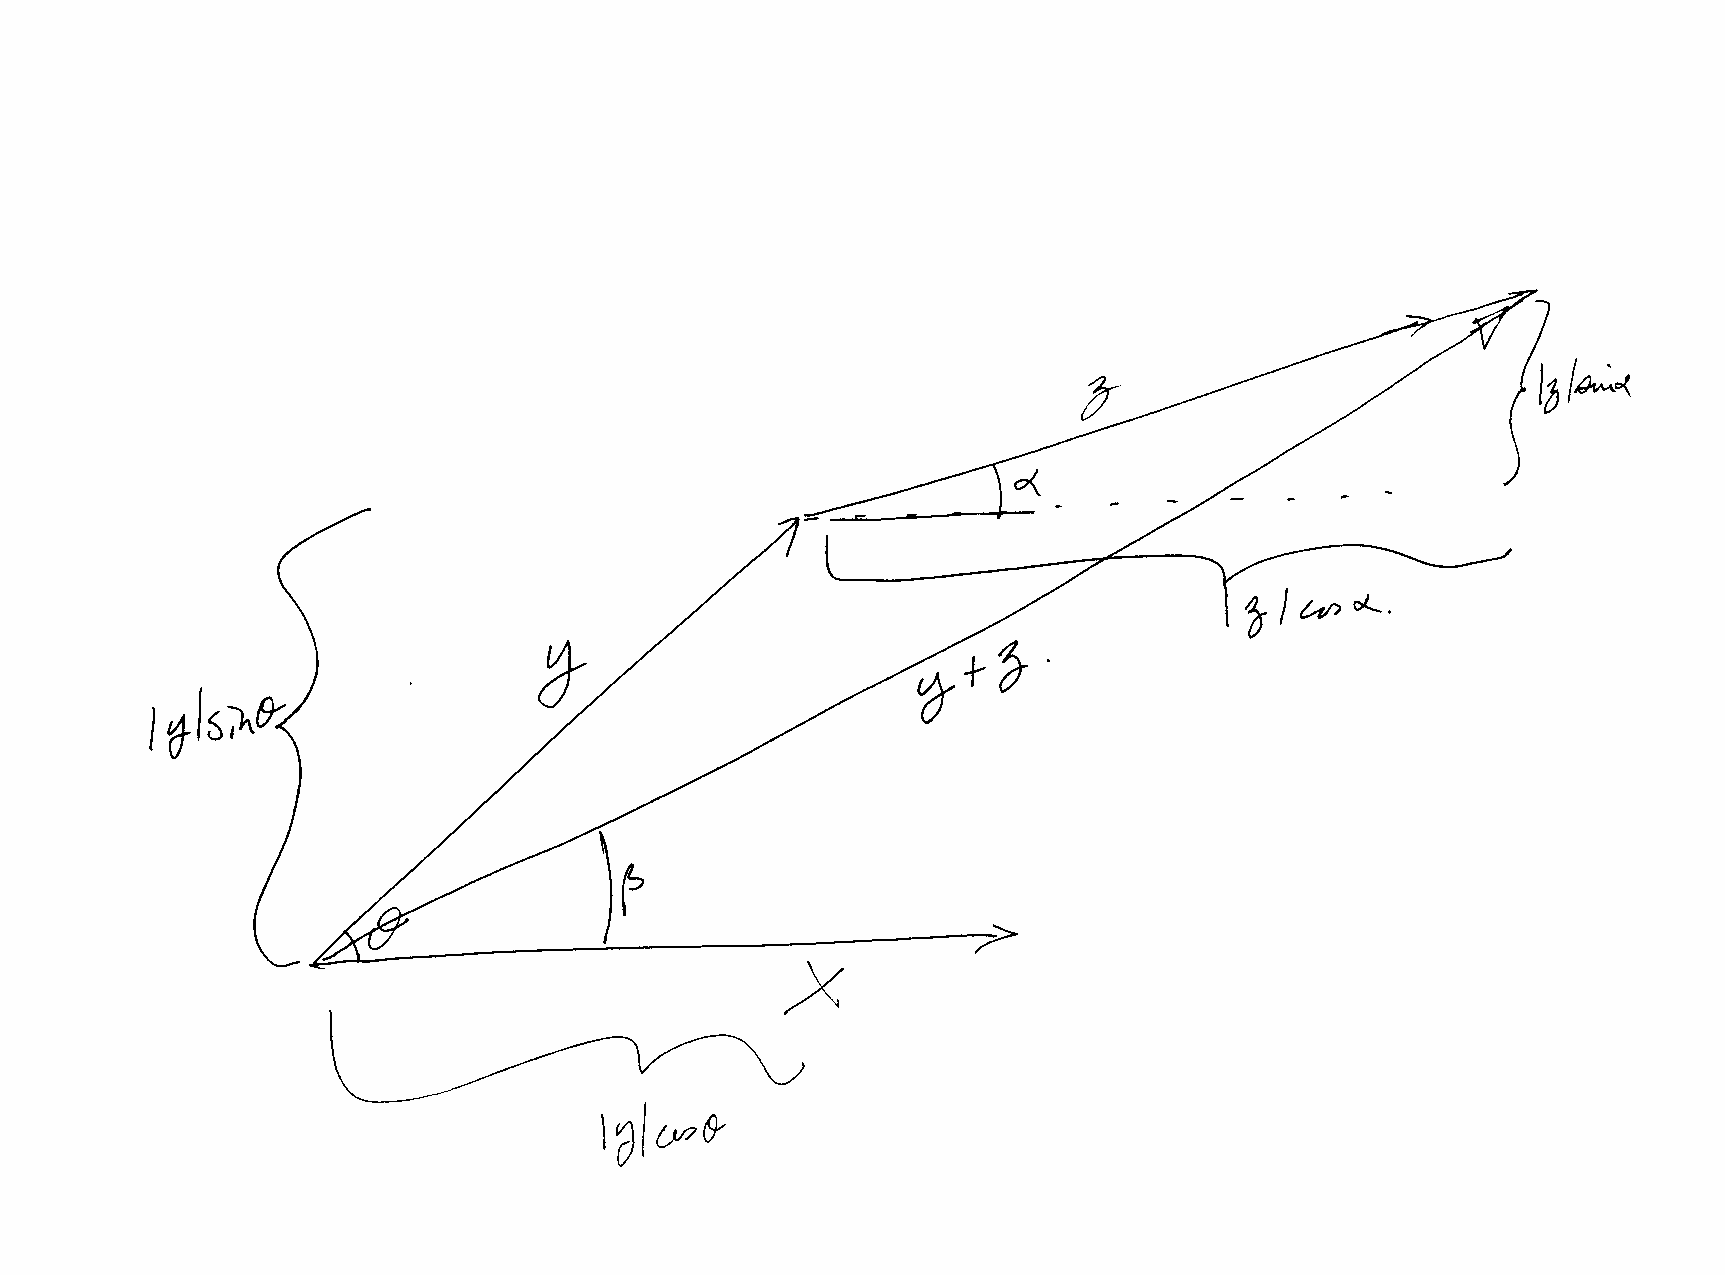 z
|z|sinα
α
|z|cosα.
y
y+z.
|y|sinθ
β
θ
x
|y|cosθ